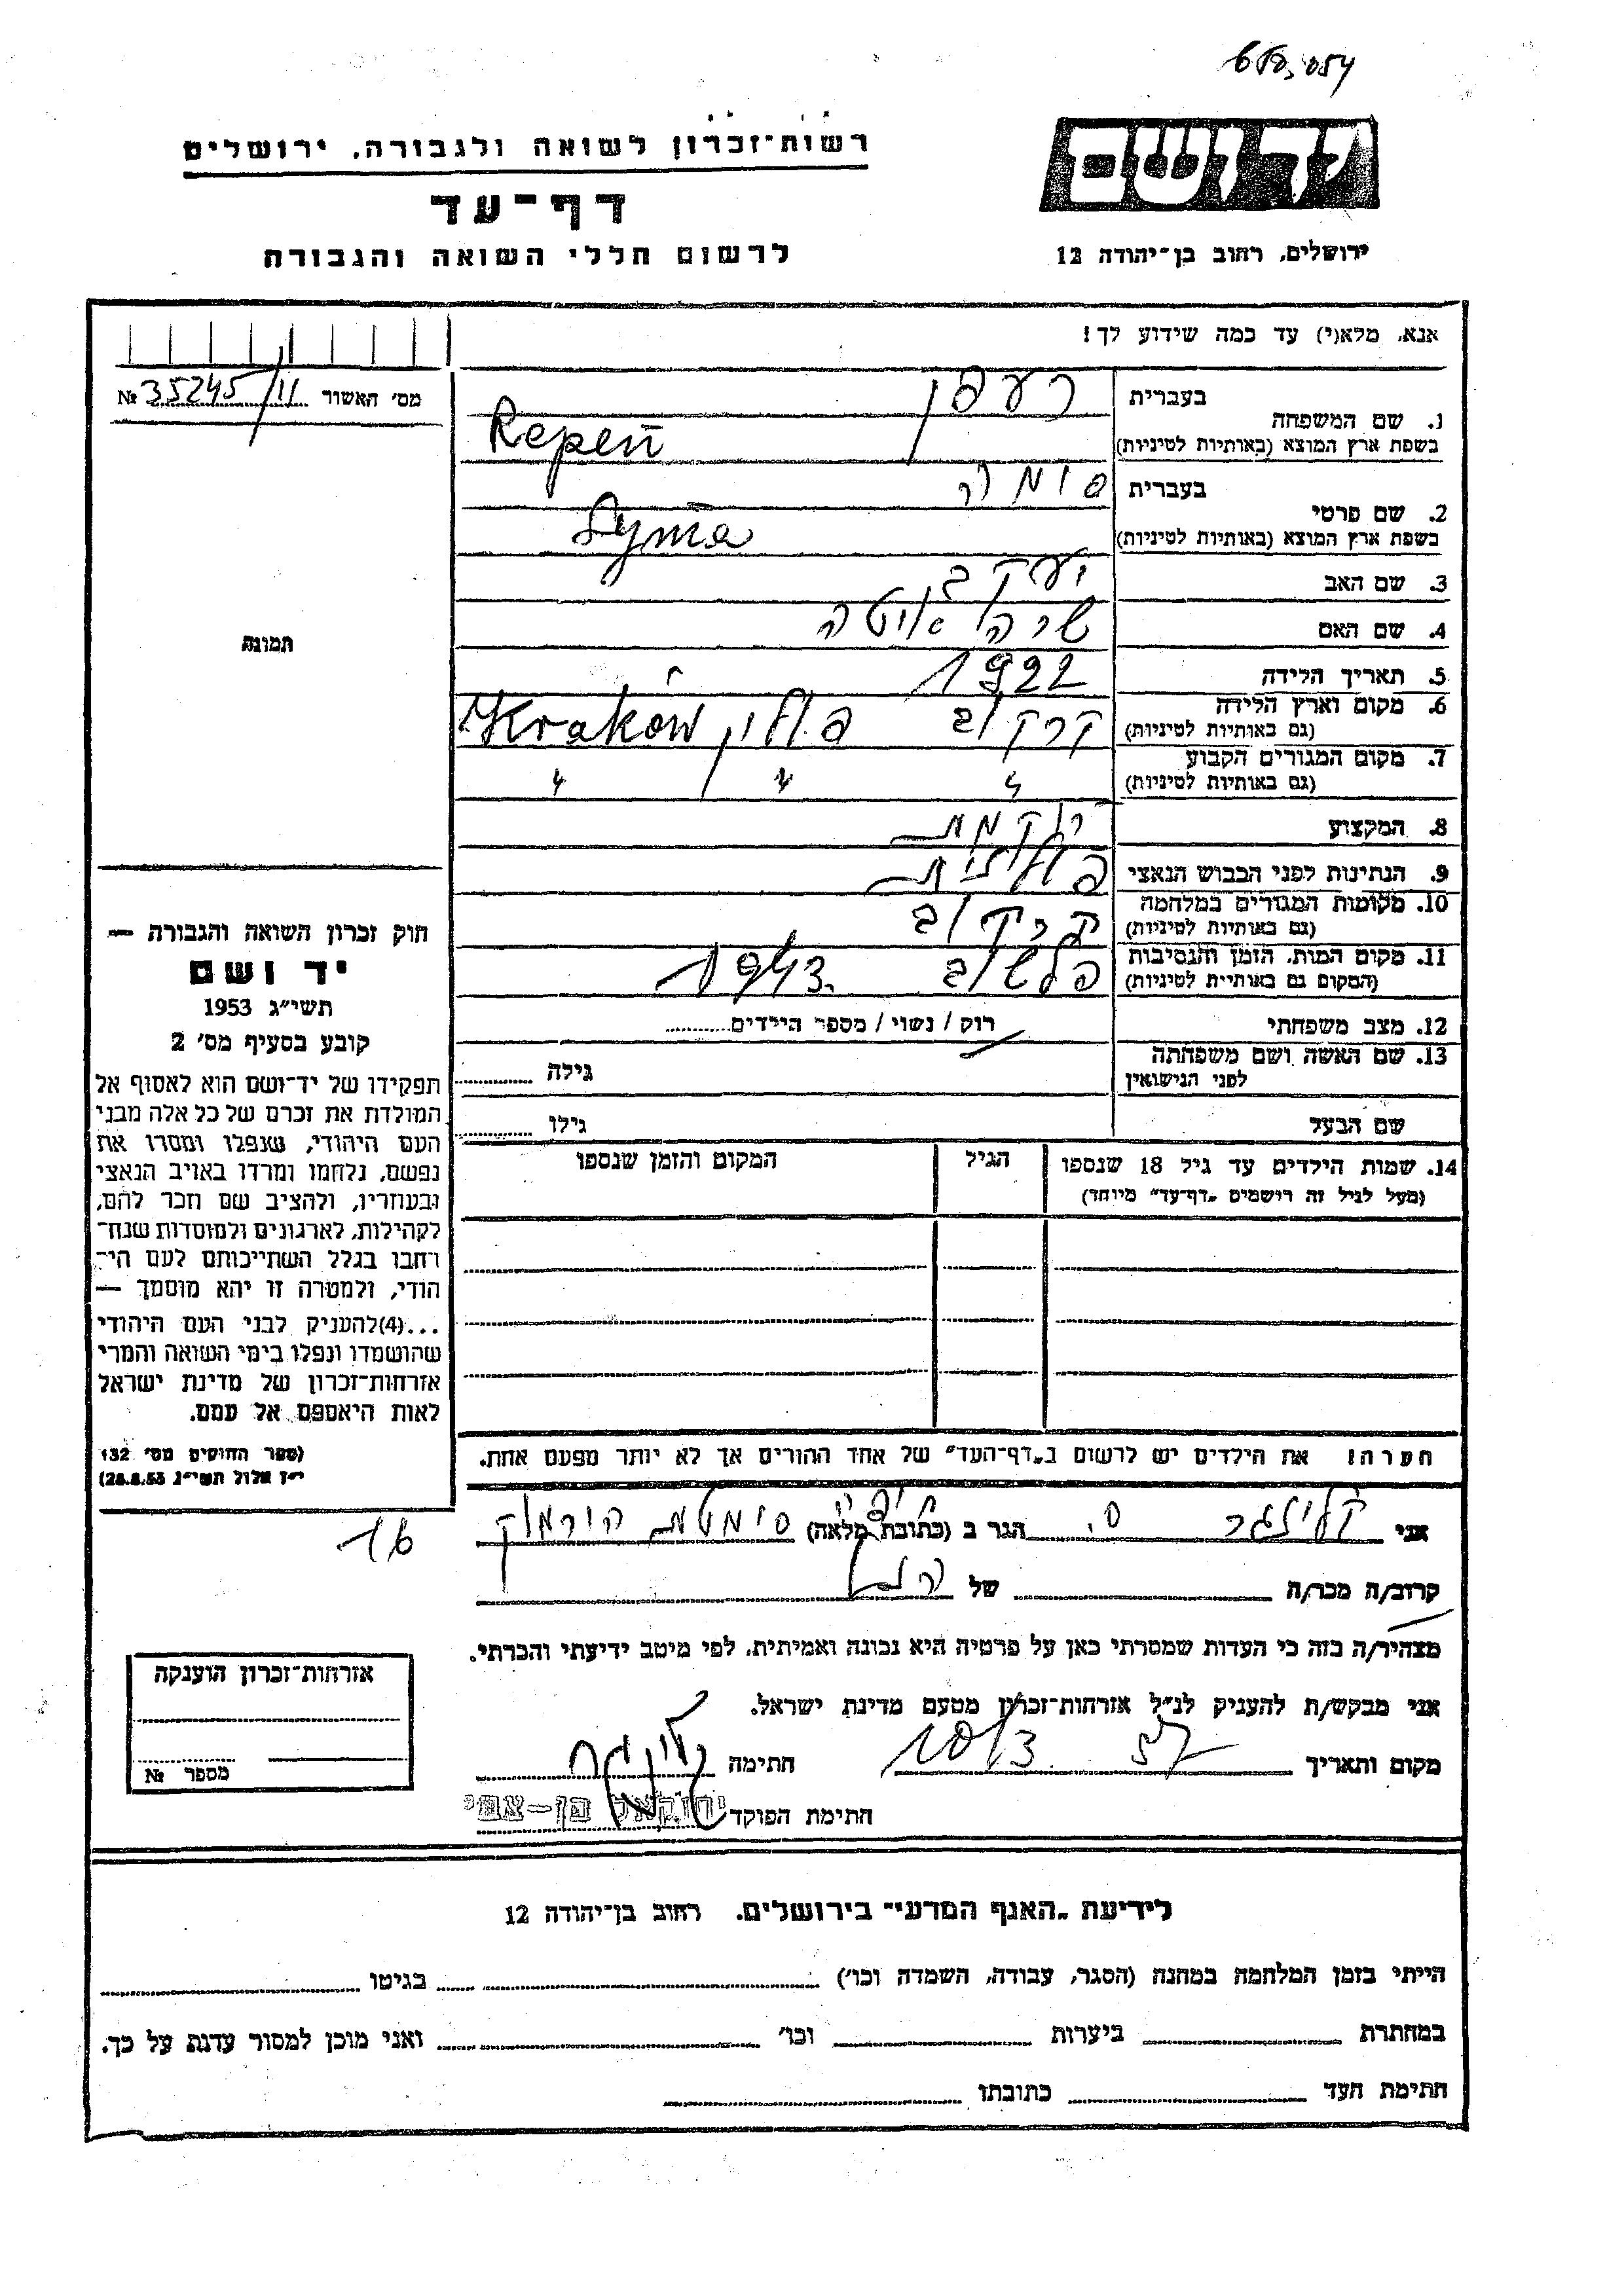 רשות־זכרון לשואה ולגבורה, ירושלים
דף־עד
לרשום חללי השואה והגבורה
יד ושם
ירושלים, רחוב בן־יהודה 12
אנא, מלא(י) עד כמה שידוע לך!
מס׳ האשור 35245/11 №
תמונה
1. שם המשפחה
בעברית רעפן
בשפת ארץ המוצא (באותיות לטיניות) Repen
2. שם פרטי
בעברית סימה
בשפת ארץ המוצא (באותיות לטיניות) Syma
3. שם האב יעקב
4. שם האם שרה איטה
5. תאריך הלידה 1922
6. מקום וארץ הלידה (גם באותיות לטיניות) קרקוב פולין Kraków
7. מקום המגורים הקבוע (גם באותיות לטיניות) " " "
8. המקצוע רוקמת
9. הנתינות לפני הכבוש הנאצי פולנית
10. מקומות המגורים במלחמה (גם באותיות לטיניות) קרקוב
11. מקום המות, הזמן והנסיבות (המקום גם באותיות לטיניות) פלשוב 1943
12. מצב משפחתי רוק / נשוי / מספר הילדים
13. שם האשה ושם משפחתה לפני הנישואין
גילה
שם הבעל
גילו
14. שמות הילדים עד גיל 18 שנספו
(מעל לגיל זה רישמים „דף־עד" מיוחד)
הגיל
המקום והזמן שנספו
הערה: את הילדים יש לרשום ב„דף־העד" של אחד ההורים אך לא יותר מפעם אחת.
חוק זכרון השואה והגבורה —
יד ושם
תשי״ג 1953
קובע בסעיף מס׳ 2
תפקידו של יד־ושם הוא לאסוף אל
המולדת את זכרם של כל אלה מבני
העם היהודי, שנפלו ומסרו את
נפשם, נלחמו ומרדו באויב הנאצי
ובעוזריו, ולהציב שם וזכר להם,
לקהילות, לארגונים ולמוסדות שנח־
רחבו בגלל השתייכותם לעם הי־
הודי, ולמטרה זו יהא מוסמך —
...(4)להעניק לבני העם היהודי
שהושמדו ונפלו בימי השואה והמרי
אזרחות־זכרון של מדינת ישראל
לאות היאספם אל עמם.
(ספר החוקים מס׳ 132
י״ז אלול תשי״ג 28.8.53)
אני קלינגר ס. הגר ב (כתובת מלאה) חיפה סימטת הירמוק
16
קרוב/ה מכר/ה של
מצהיר/ה בזה כי העדות שמסרתי כאן על פרטיה היא נכונה ואמיתית, לפי מיטב ידיעתי והכרתי.
אני מבקש/ת להעניק לנ״ל אזרחות־זכרון מטעם מדינת ישראל.
מקום ותאריך 10/3 57 חתימה קלינגר
חתימת הפוקד יחזקאל בן־צבי
אזרחות־זכרון הוענקה
מספר №
לידיעת „האגף המדעי" בירושלים, רחוב בן־יהודה 12
הייתי בזמן המלחמה במחנה (הסגר, עבודה, השמדה וכו׳) בגיטו
במחתרת ביערות וכו׳ ואני מוכן למסור עדות על כך.
חתימת העד כתובתו